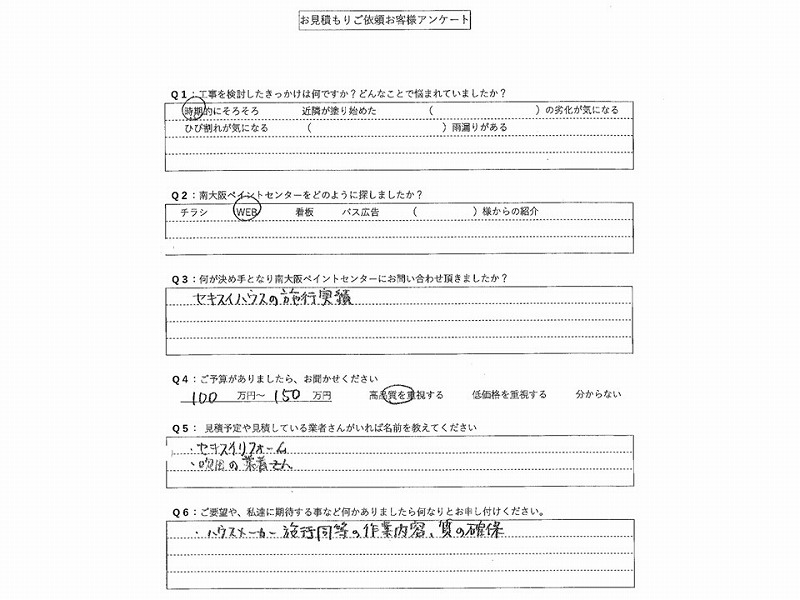 お見積もりご依頼お客様アンケート
Q1：工事を検討したきっかけは何ですか？どんなことで悩まれていましたか？
時期的にそろそろ 近隣が塗り始めた （ ）の劣化が気になる
ひび割れが気になる （ ）雨漏りがある
Q2：南大阪ペイントセンターをどのように探しましたか？
チラシ WEB 看板 バス広告 （ ）様からの紹介
Q3：何が決め手となり南大阪ペイントセンターにお問い合わせ頂きましたか？
セキスイハウスの施行実績
Q4：ご予算がありましたら、お聞かせください
100 万円～ 150 万円 高品質を重視する 低価格を重視する 分からない
Q5： 見積予定や見積している業者さんがいれば名前を教えてください
・セキスイリフォーム
・吹田の業者さん
Q6：ご要望や、私達に期待する事など何かありましたら何なりとお申し付けください。
・ハウスメーカー施行同等の作業内容、質の確保